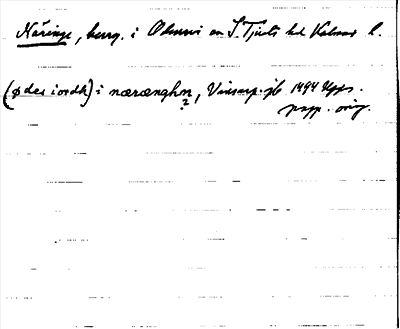 Näringe, herg. i Ölmevi sn S. Tjusts hd Kalmar l.
(ødes iordh) i nærænghn, Vinsarp. jb 1494 Upps.
?
papp. orig.